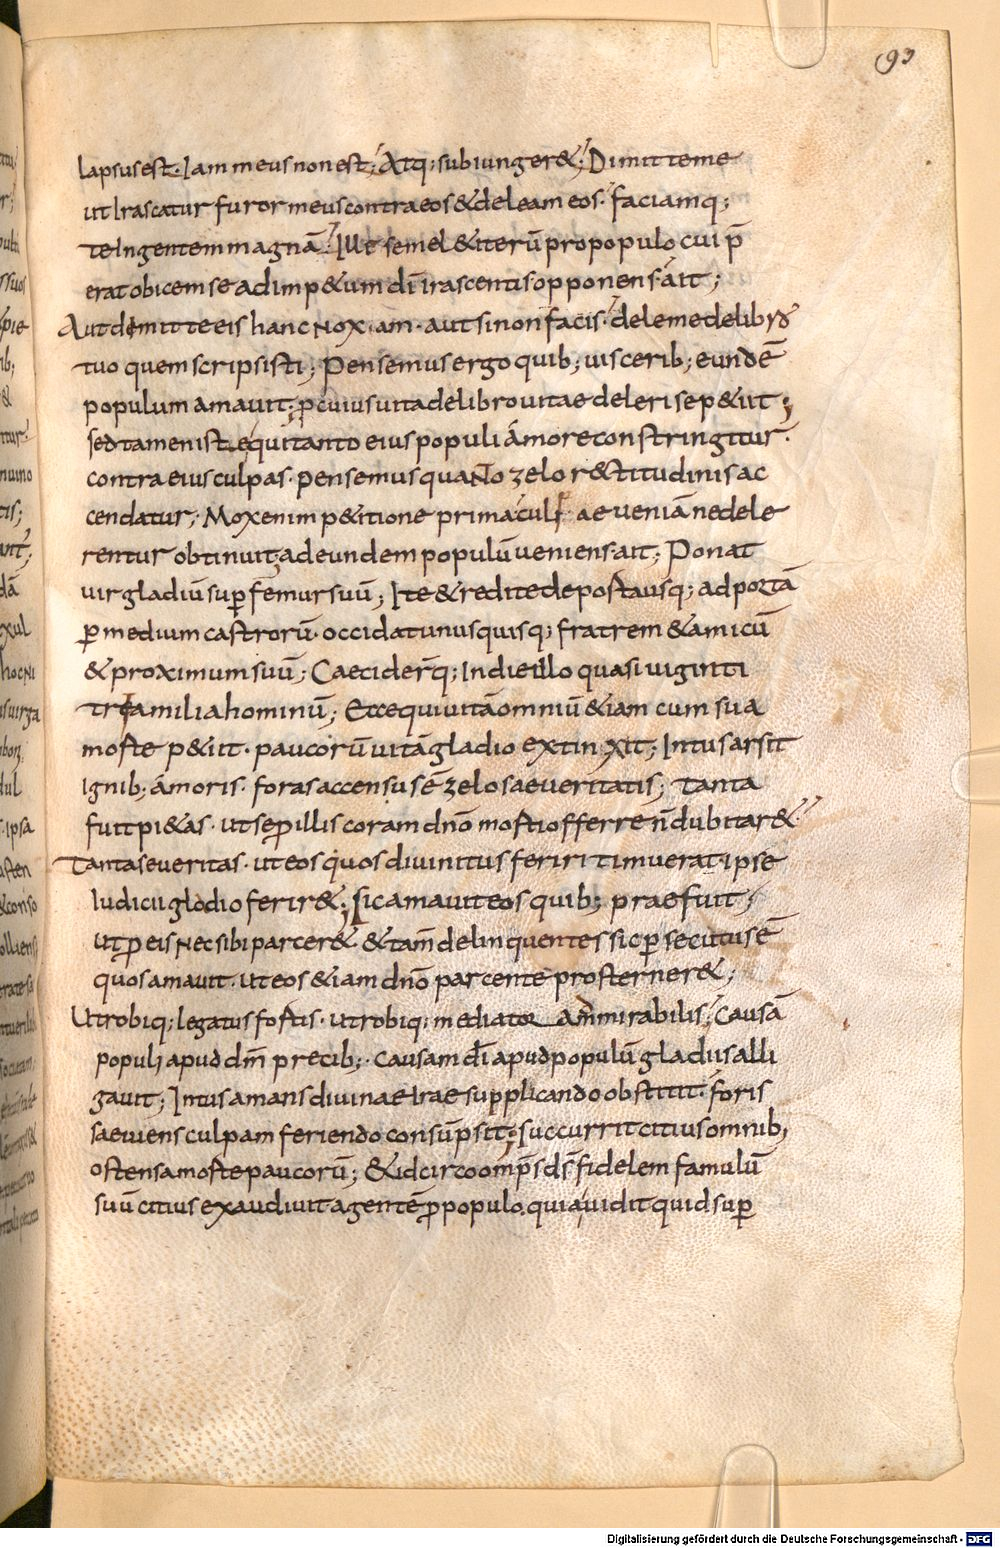 93
lapsus est. Iam meus non est; Atq; subiunger&; Dimitte me
ut Irascatur furor meus contra eos & deleam eos. faciamq;
te In gentem magnā; Ille semel & iterū pro populo cui p̄
erat obicem se ad imp&um dī irascentis opponens. ait;
Aut dimitte eis hanc NoXam. aut si non facis. dele me de libro
tuo quem scripsisti; Pensemus ergo quib; uiscerib; eundē
populum amauit; ꝓ cuius uita de libro uitae deleri se p&iit;
sed tamen iste qui tanto eius populi amore constringitur.
contra eius culpas. pensemus quaNto zelo r&titudinis ac
cendatur; Mox enim p&itione prima culpae ueniā ne dele
rentur obtinuit, ad eundem populū ueniens. ait; Ponat
uir gladiū sup̱ femur suū; Ite & redite de porta usq; ad portā
p̱ medium castrorū. occidat unusquisq; fratrem & amicū
& proximum suū; Caeciderꝗ; In die illo quasi uiginti
tria milia hominū; Ecce qui uitā omniū & iam cum sua
morte p&iit. paucorū uitā gladio extinxit; Intus arsit
Ignib; amoris. foras accensus ē zelo saeueritatis; Tanta
fuit pi&as. ut se ꝓ illis coram dno morti offerre n̄ dubitar&
Tanta seueritas. ut eos quos diuinitus feriri timuerat. ipse
Iudicii gladio ferir&; Sic amauit eos quib; praefuit,
ut ꝓ eis Nec sibi parcer& & tam̄ delinquentes sic p̱secutus ē
quos amauit. ut eos &iam dno parcente prosterner&;
Utrobiq; legatus fortis. utrobiq; mediator ammirabilis; Causā
populi apud dm̄ precib;. causam dī apud populū gladiis alli
gauit; Intus amans diuinae Irae supplicando obstitit. foris
saeuiens culpam feriendo consūpsit; succurrit citius omnib;
ostensa morte paucorū; & idcirco omp̄s ds̄ fidelem famulū
suū citius exaudiuit agentē ꝓ populo. quia uidit quid sup̱
Digitalisierung gefördert durch die Deutsche Forschungsgemeinschaft - DFG